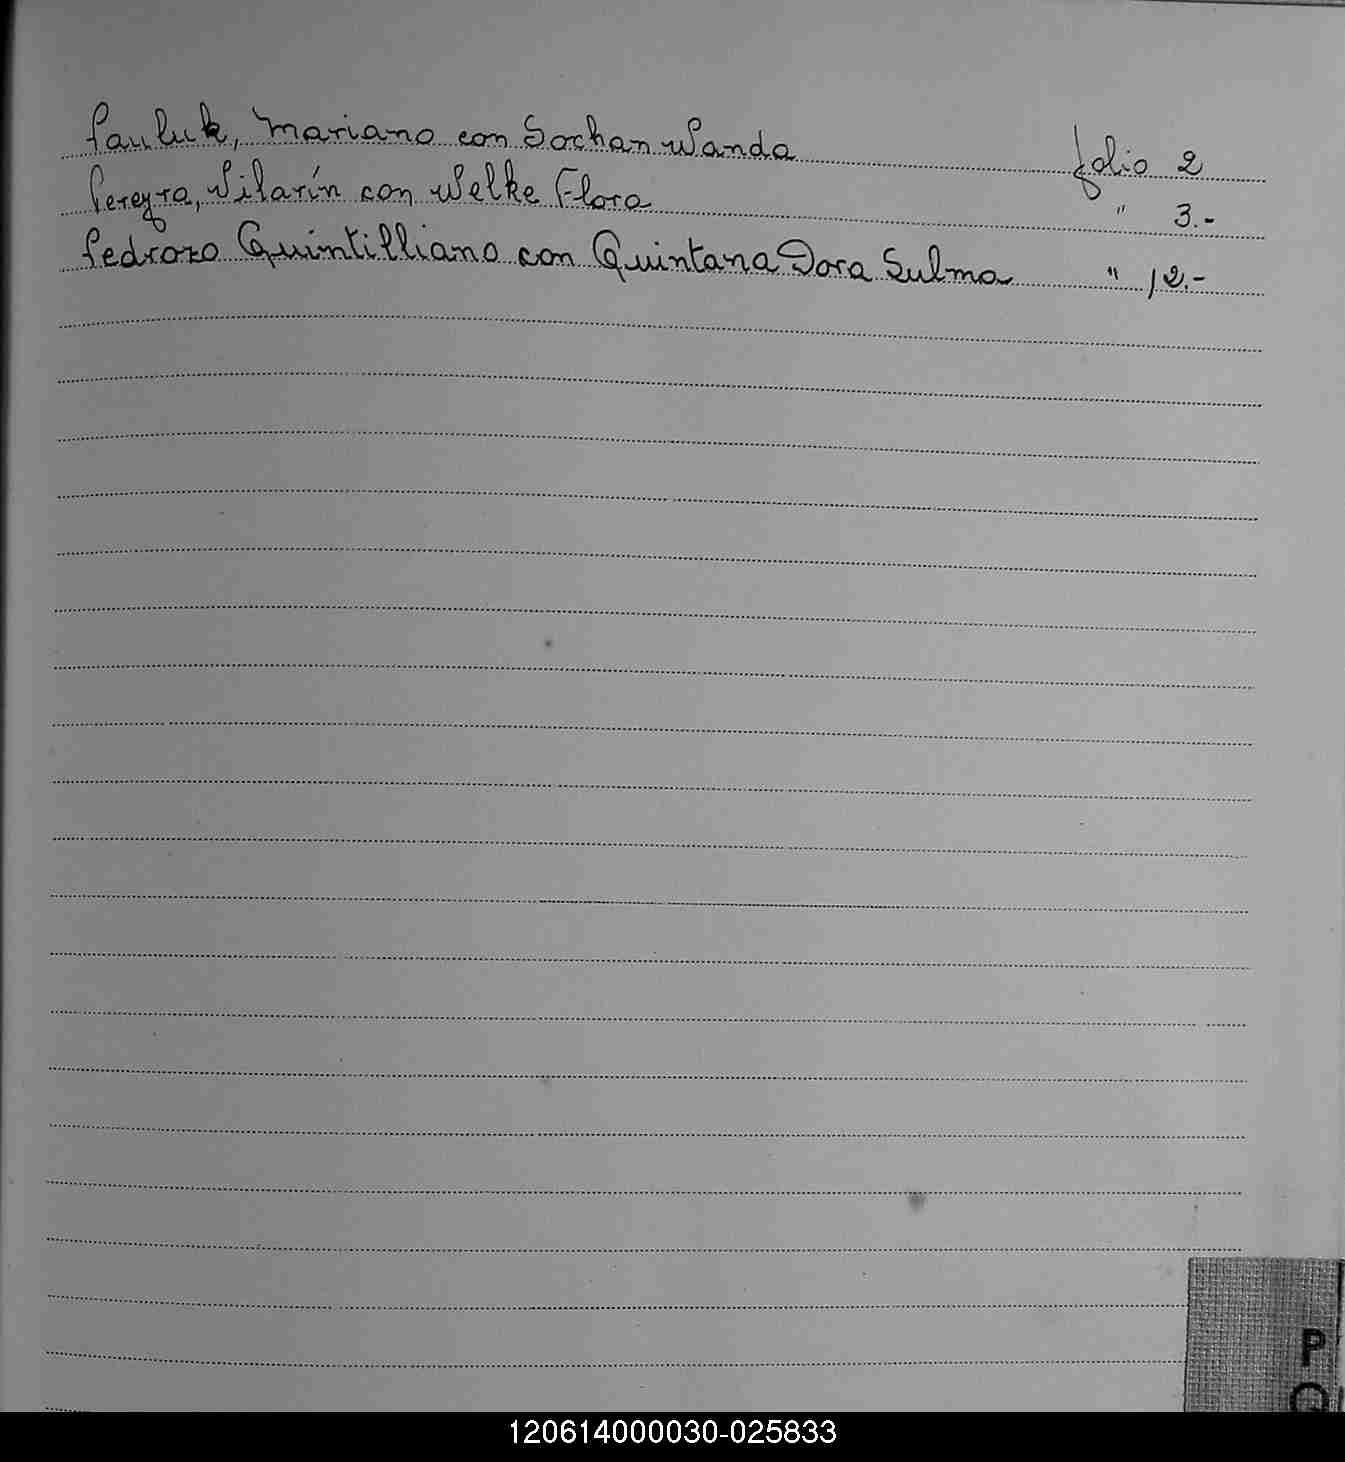 Pauluk, Mariano con Sochan Wanda folio 2
Pereyra, Vilarín con Welke Flora " 3.-
Pedrozo Quintilliano con Quintana Dora Sulma " 12.-
P
Q
120614000030-025833